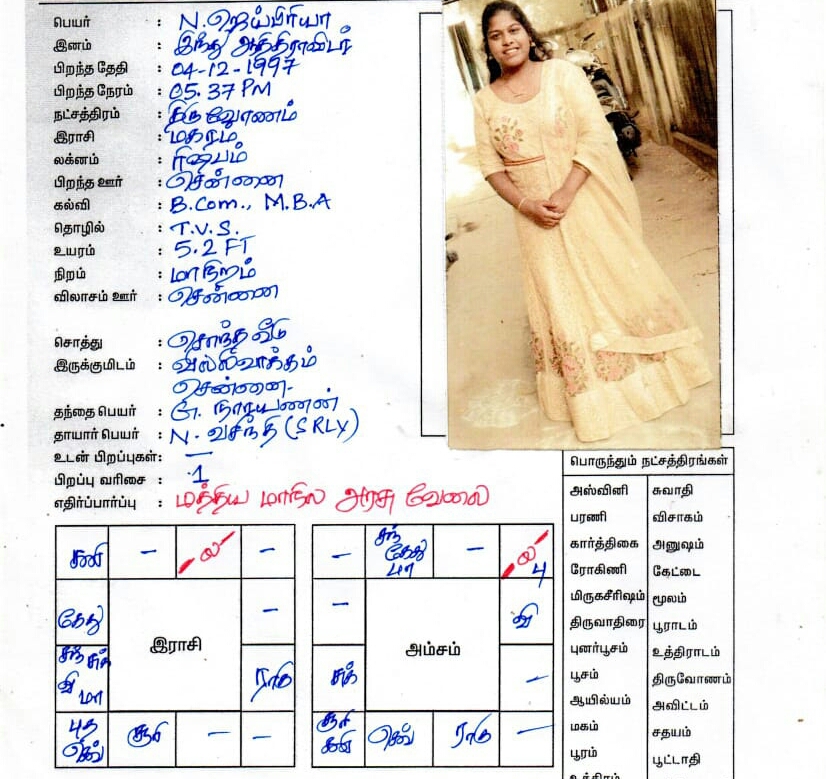 பெயர் : N. ஜெயப்பிரியா
இனம் : இந்து ஆதிதிராவிடர்
பிறந்த தேதி : 04-12-1997
பிறந்த நேரம் : 05.37 PM
நட்சத்திரம் : திருவோணம்
இராசி : மகரம்
லக்னம் : ரிஷபம்
பிறந்த ஊர் : சென்னை
கல்வி : B.Com., M.B.A
தொழில் : T.V.S.
உயரம் : 5.2 FT
நிறம் : மாநிறம்
விலாசம் ஊர் : சென்னை
சொத்து : சொந்த வீடு
இருக்குமிடம் : வில்லிவாக்கம்
சென்னை-
தந்தை பெயர் : G. நாராயணன்
தாயார் பெயர் : N. வசந்தி (SRLY)
உடன் பிறப்புகள் : —
பிறப்பு வரிசை : 1
எதிர்ப்பார்ப்பு : மத்திய மாநில அரசு வேலை
சனி – ல –
கேது –
சந் சுக்
வி மா ராகு
புத
செவ் சூரி – –
இராசி
– சந் கேது மா – ல பு
– வி
சுக் –
சூரி சனி செவ் ராகு –
அம்சம்
பொருந்தும் நட்சத்திரங்கள்
அஸ்வினி சுவாதி
பரணி விசாகம்
கார்த்திகை அனுஷம்
ரோகிணி கேட்டை
மிருகசீரிஷம் மூலம்
திருவாதிரை பூராடம்
புனர்பூசம் உத்திராடம்
பூசம் திருவோணம்
ஆயில்யம் அவிட்டம்
மகம் சதயம்
பூரம் பூட்டாதி